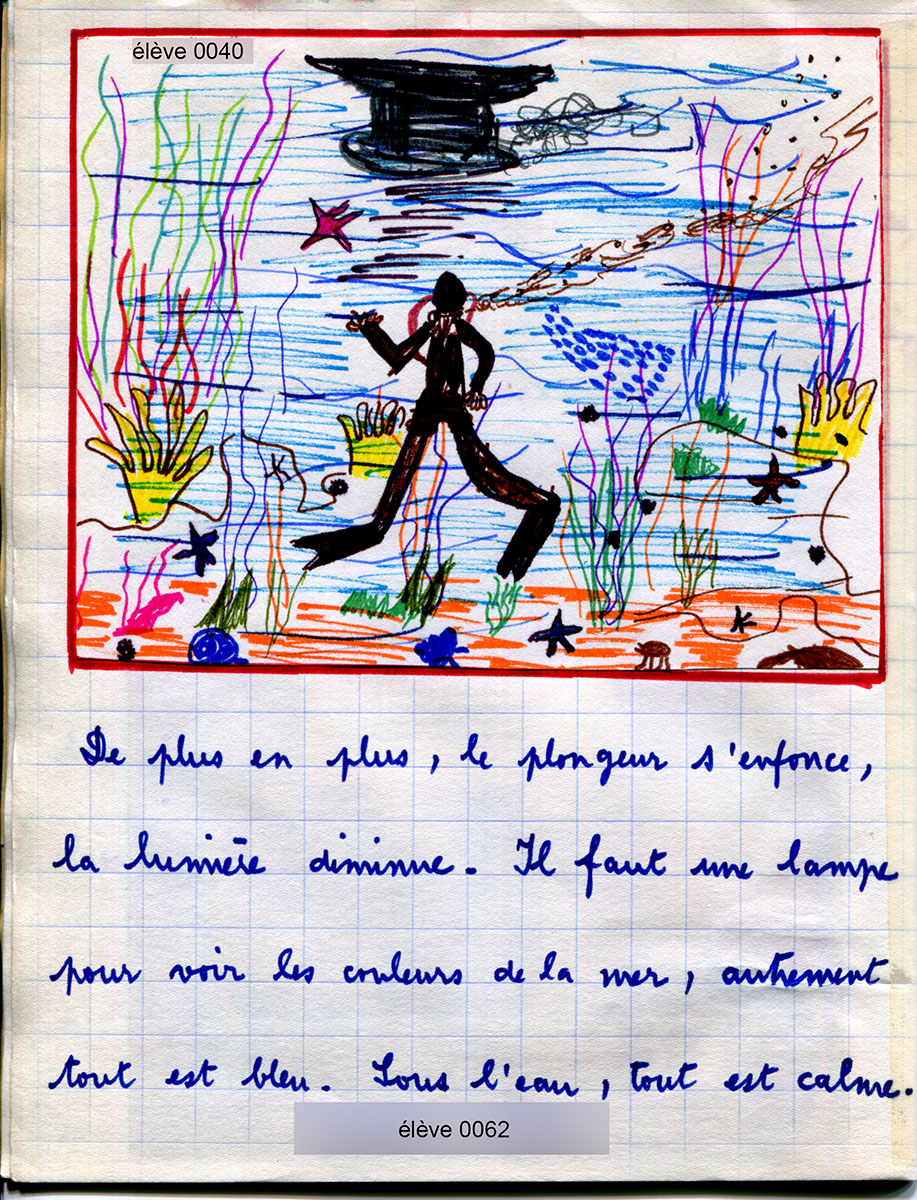 élève 0040
De plus en plus, le plongeur s'enfonce,
la lumière diminue. Il faut une lampe
pour voir les couleurs de la mer, autrement
tout est bleu. Sous l'eau, tout est calme.
élève 0062